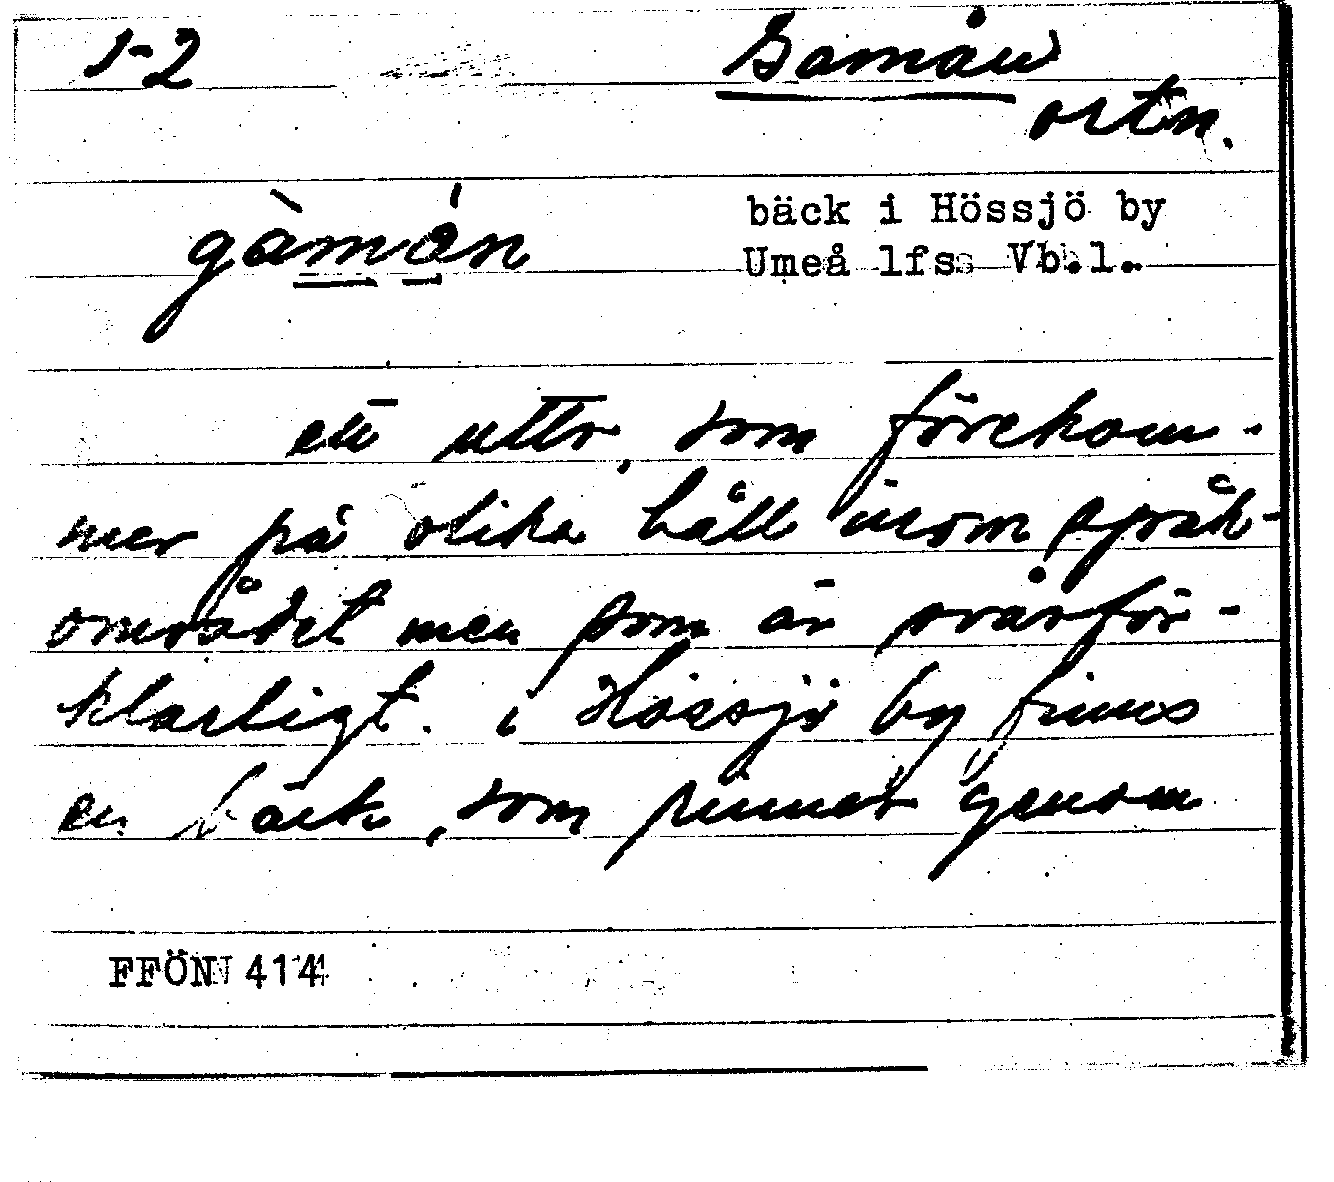 1-2 Gamån
ortn.
gàmán
bäck i Hössjö by
Umeå lfs Vb.l.
ett uttr, som förekom-
mer på olika håll inom språk-
området men som är svårför-
klarligt. i Hössjö by finns
en bäck, som rinner genom
FFÖN 414